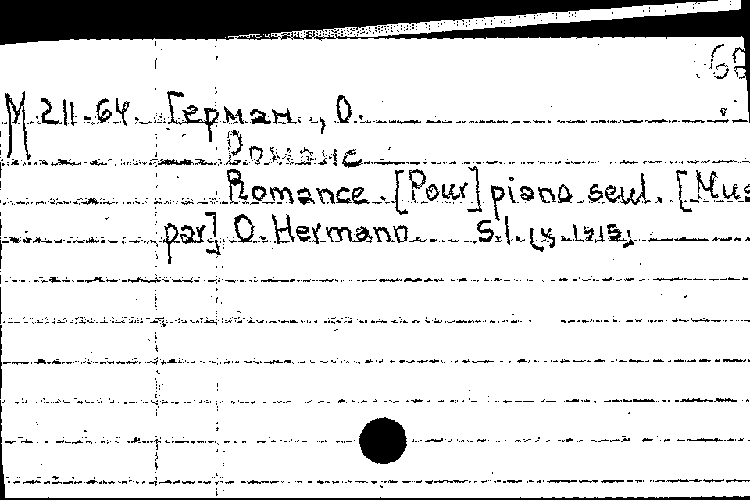 68
М 211-64. Герман., О.
Романс
Romance. [Pour] piano seul. [Mus
par] O. Hermann. S.l.